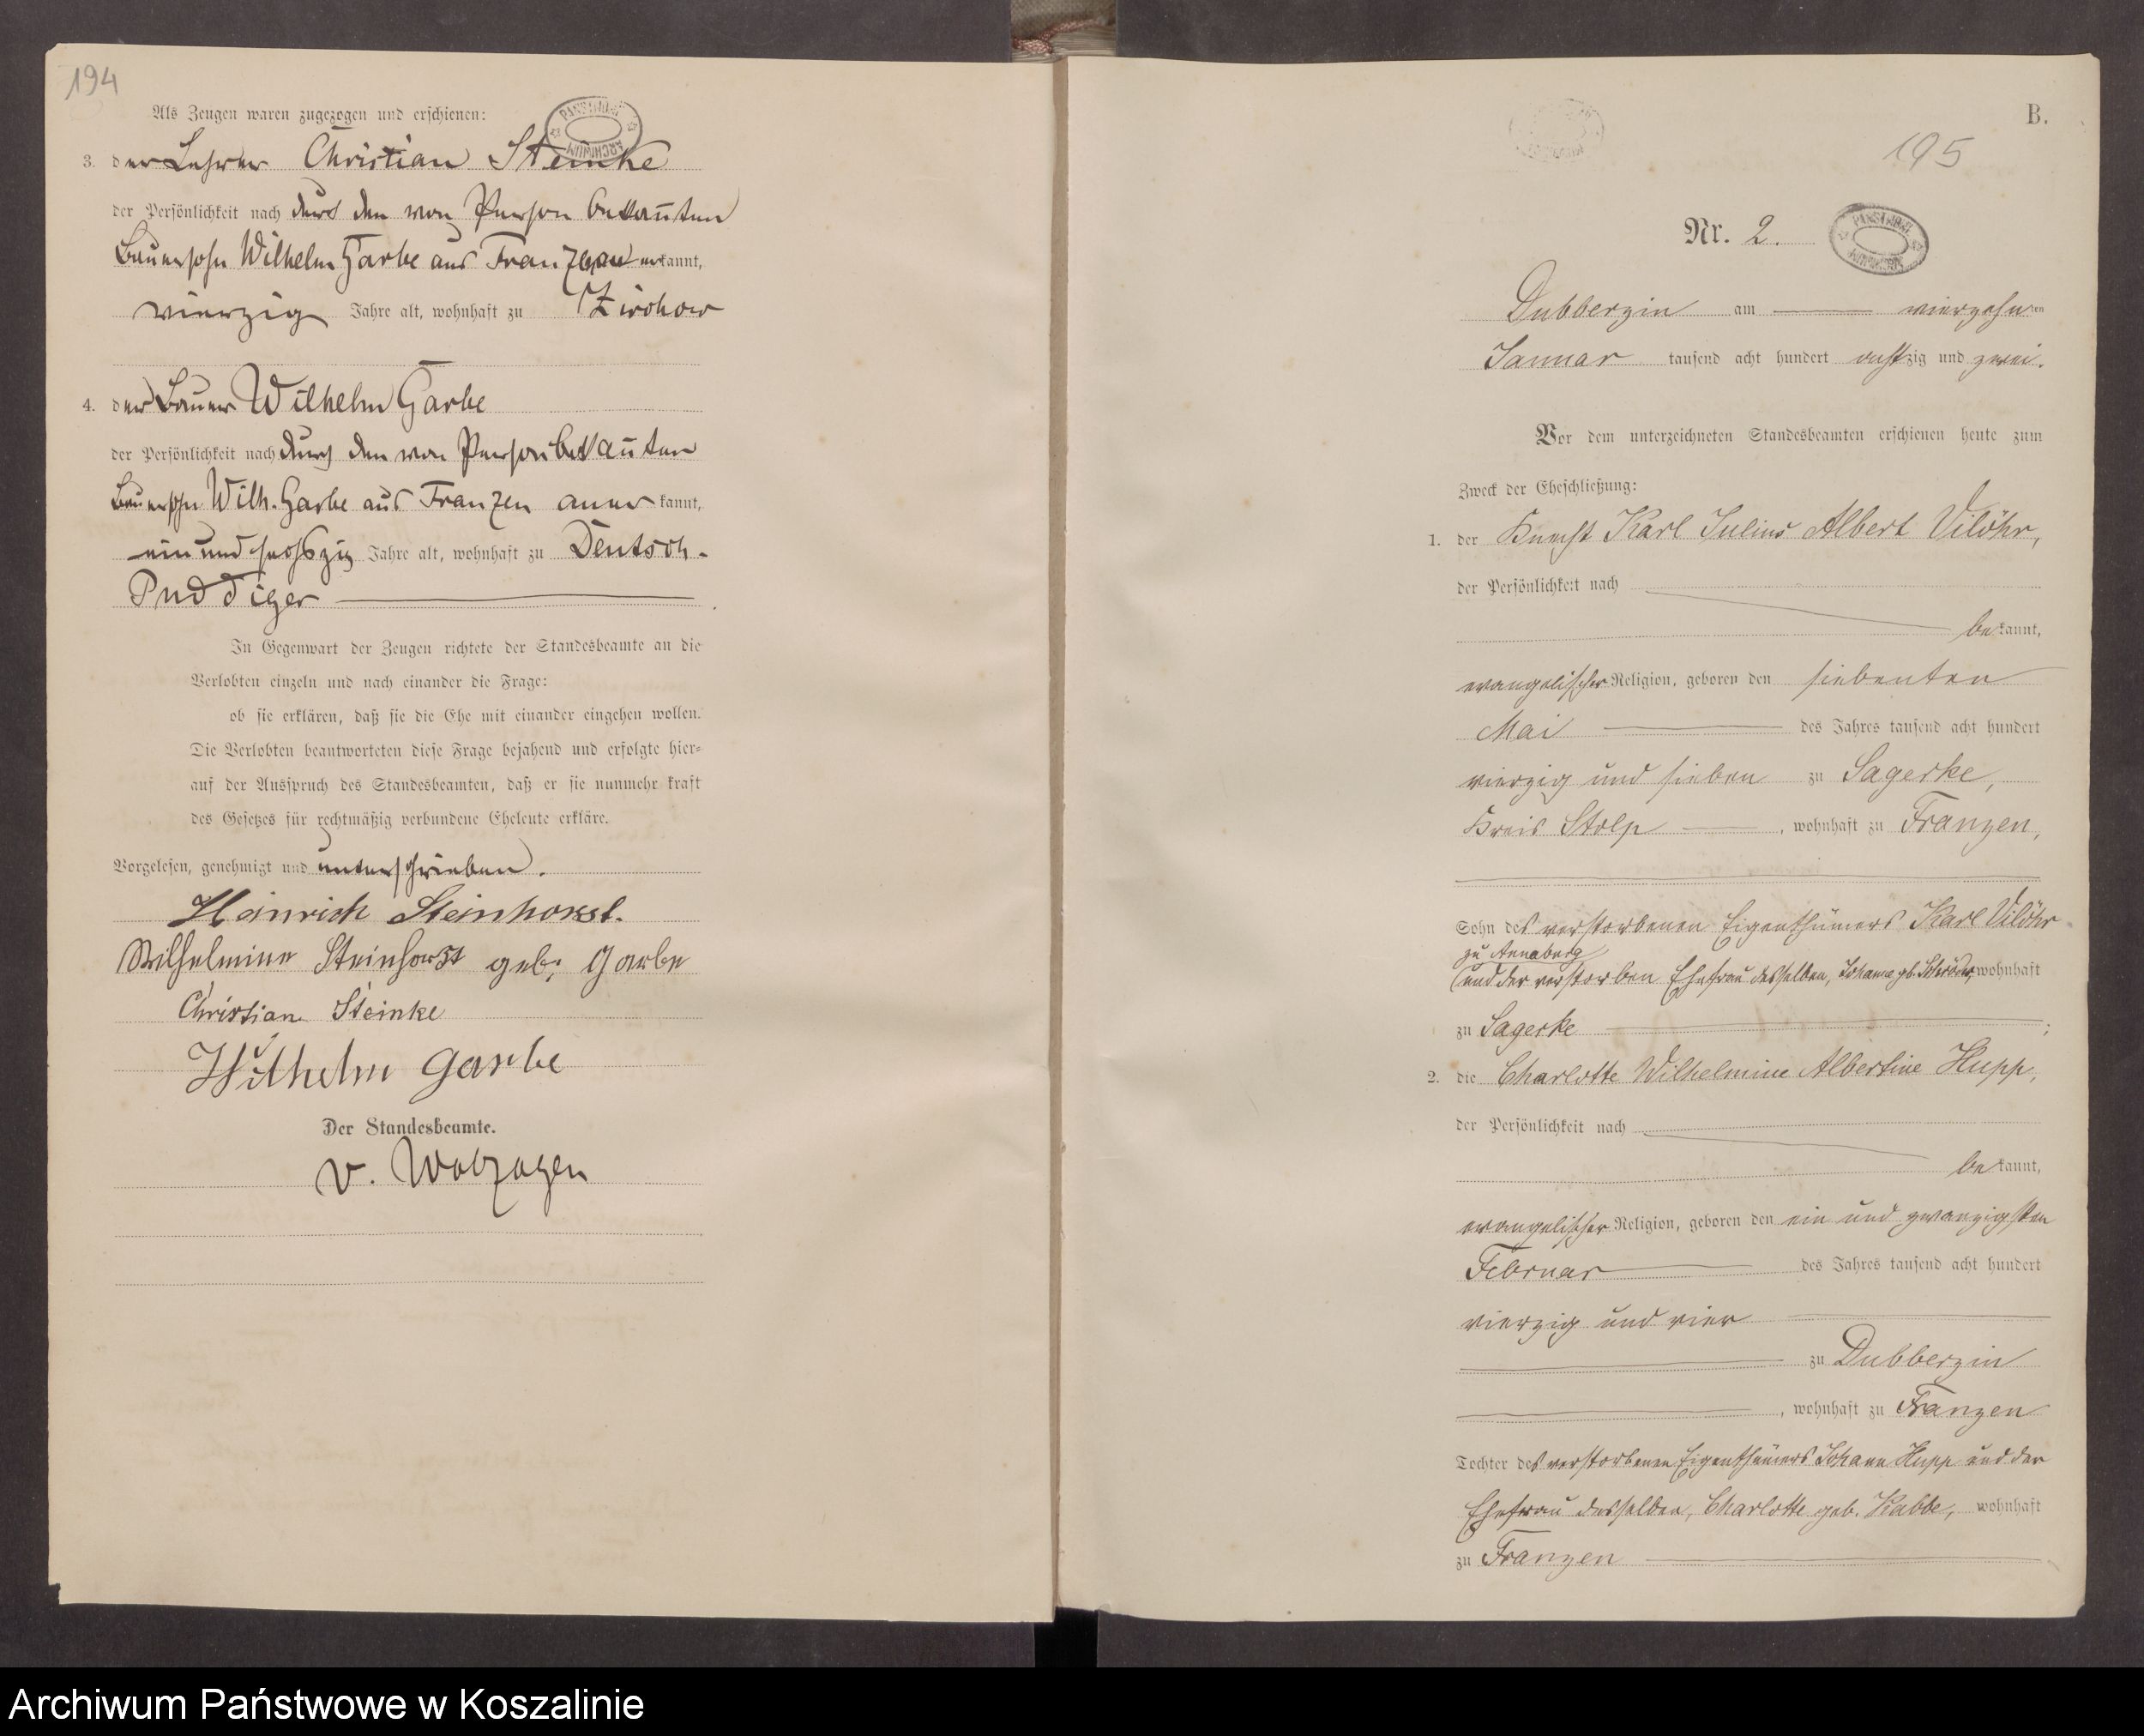 194
Als Zeugen waren zugezogen und erschienen:
3. der Lehrer Christian Steinke
der Persönlichkeit nach durch den von Person bekannten
Bauersohn Wilhelm Garbe aus Franzen anerkannt,
vierzig Jahre alt, wohnhaft zu Zirchow
4. der Bauer Wilhelm Garbe
der Persönlichkeit nach durch den von Person bekannten
Bauersohn Wilh. Garbe aus Franzen anerkannt,
ein und sechszig Jahre alt, wohnhaft zu Deutsch-
Puddiger
In Gegenwart der Zeugen richtete der Standesbeamte an die
Verlobten einzeln und nach einander die Frage:
ob sie erklären, daß sie die Ehe mit einander eingehen wollen.
Die Verlobten beantworteten diese Frage bejahend und erfolgte hier-
auf der Ausspruch des Standesbeamten, daß er sie nunmehr kraft
des Gesetzes für rechtmäßig verbundene Eheleute erkläre.
Vorgelesen, genehmigt und unterschrieben.
Heinrich Steinhorst.
Wilhelmine Steinhorst geb. Garbe
Christian Steinke
Wilhelm Garbe
Der Standesbeamte.
v. Wolzogen
PAŃSTWOWE ARCHIWUM
B.
195
Nr. 2.
Dubberzin am vierzehnten
Januar tausend acht hundert achtzig und zwei.
Vor dem unterzeichneten Standesbeamten erschienen heute zum
Zweck der Eheschließung:
1. der Knecht Karl Julius Albert Vilöhr,
der Persönlichkeit nach
bekannt,
evangelischer Religion, geboren den siebenten
Mai des Jahres tausend acht hundert
vierzig und sieben zu Sagerke,
Kreis Stolp, wohnhaft zu Franzen,
Sohn des verstorbenen Eigenthümers Karl Vilöhr
zu Annaberg
und der verstorben Ehefrau desselben, Johanna gb. Schröder, wohnhaft
zu Sagerke;
2. die Charlotte Wilhelmine Albertine Hupp,
der Persönlichkeit nach
bekannt,
evangelischer Religion, geboren den ein und zwanzigsten
Februar des Jahres tausend acht hundert
vierzig und vier
zu Dubberzin
, wohnhaft zu Franzen
Tochter des verstorbenen Eigenthümers Johann Hupp und der
Ehefrau desselben, Charlotte geb. Kabbe, wohnhaft
zu Franzen
Archiwum Państwowe w Koszalinie